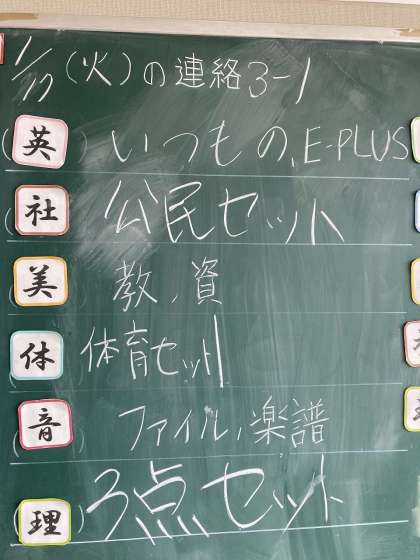 1/17(火)の連絡3-1
英 いつもの、E-PLUS
社 公民セット
美 教、資
体 体育セット
音 ファイル、楽譜
理 3点セット